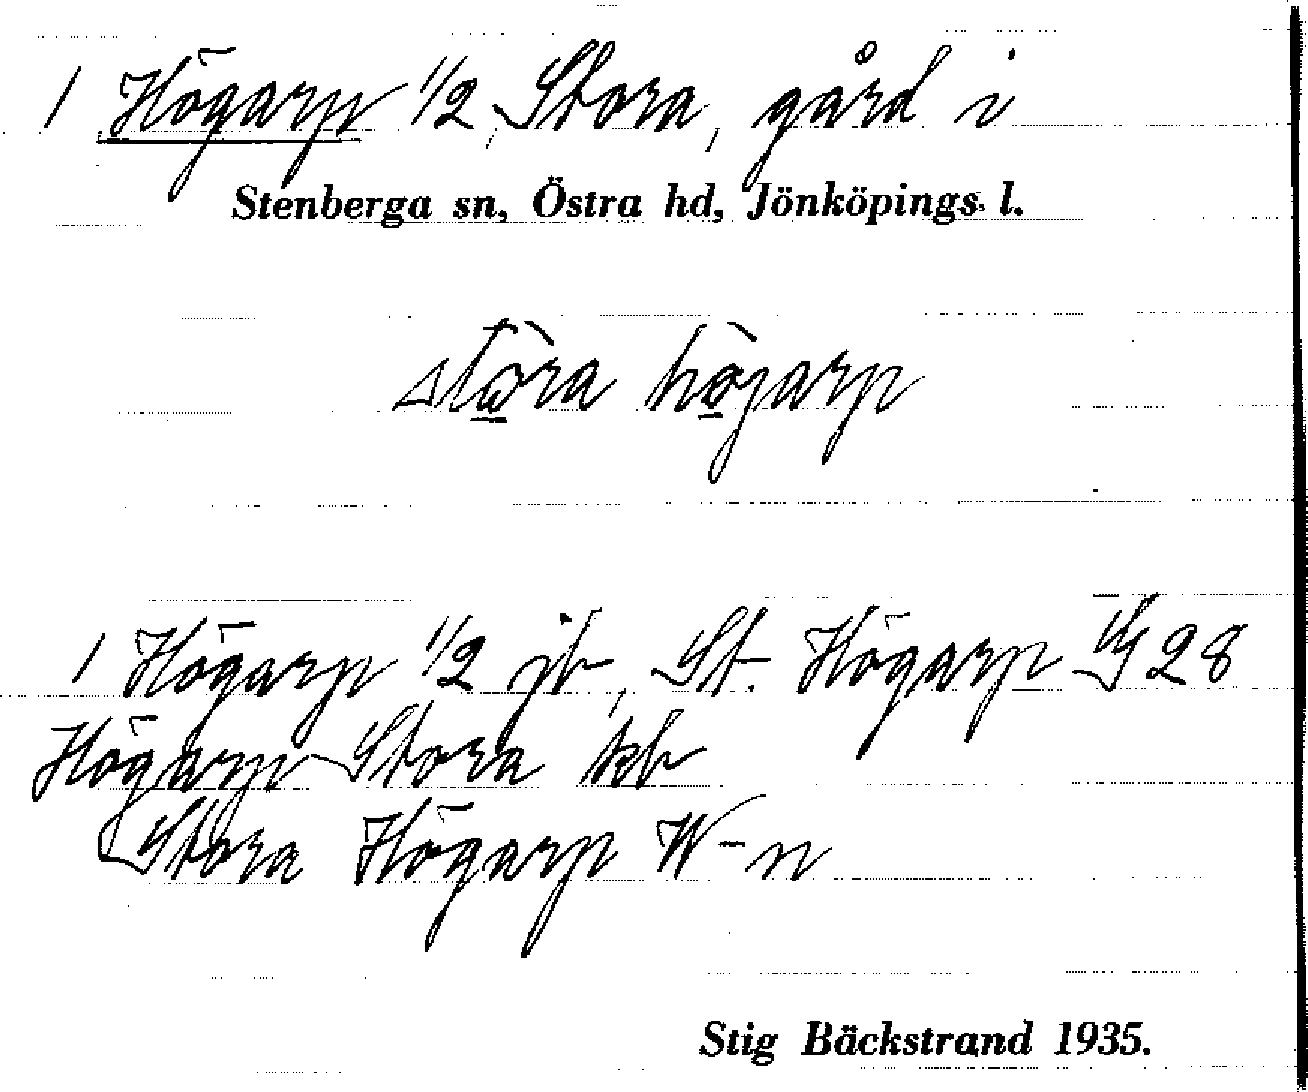 1 Högarp 1/2, Stora, gård i
Stenberga sn, Östra hd, Jönköpings l.
stòra hògarp
1 Högarp 1/2 jb, St. Högarp GS 28
Högarp Stora kb
Stora Högarp W-n
Stig Bäckstrand 1935.